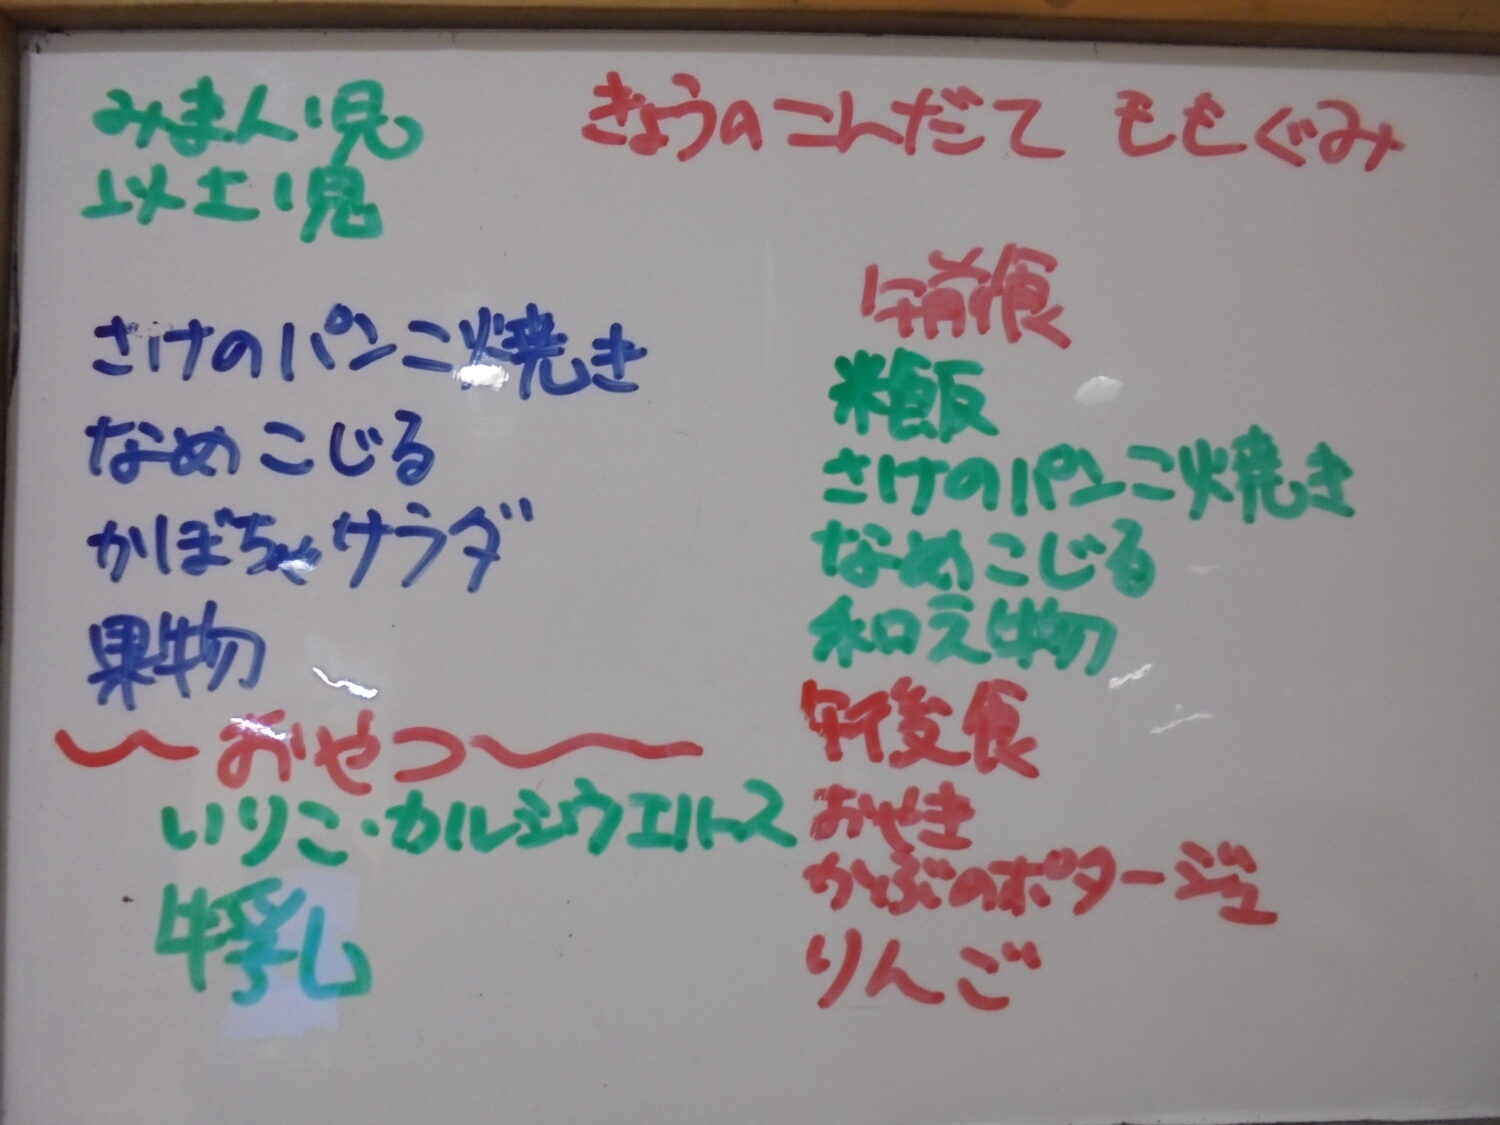 みまん児
以上児
きょうのこんだて ももぐみ
さけのパンこ焼き
なめこじる
かぼちゃサラダ
果物
〜おやつ〜
いりこ・カルシウエハース
牛乳
午前食
米飯
さけのパンこ焼き
なめこじる
和え物
午後食
おやき
かぶのポタージュ
りんご